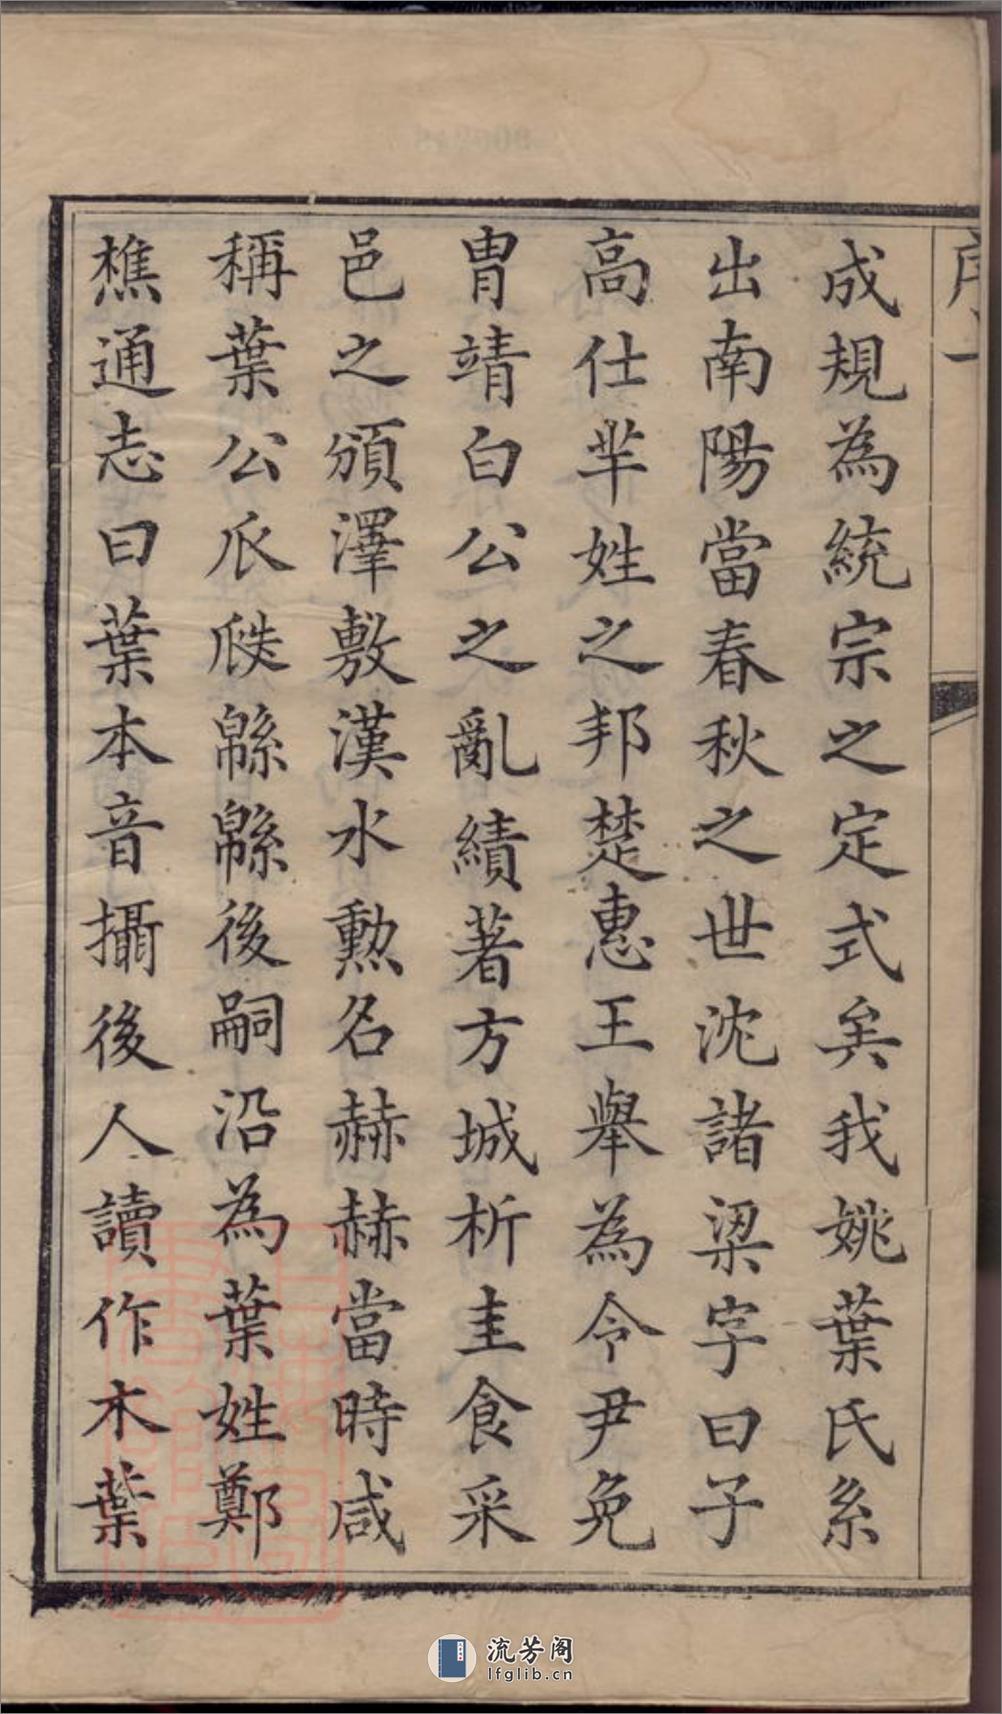 序一
成規為統宗之定式矣我姚葉氏系
出南陽當春秋之世沈諸梁字曰子
高仕羋姓之邦楚惠王舉為令尹免
胄靖白公之亂績著方城析圭食采
邑之頒澤敷漢水勲名赫赫當時咸
稱葉公瓜瓞緜緜後嗣沿為葉姓鄭
樵通志曰葉本音攝後人讀作木葉
流芳阁
lfglib.cn